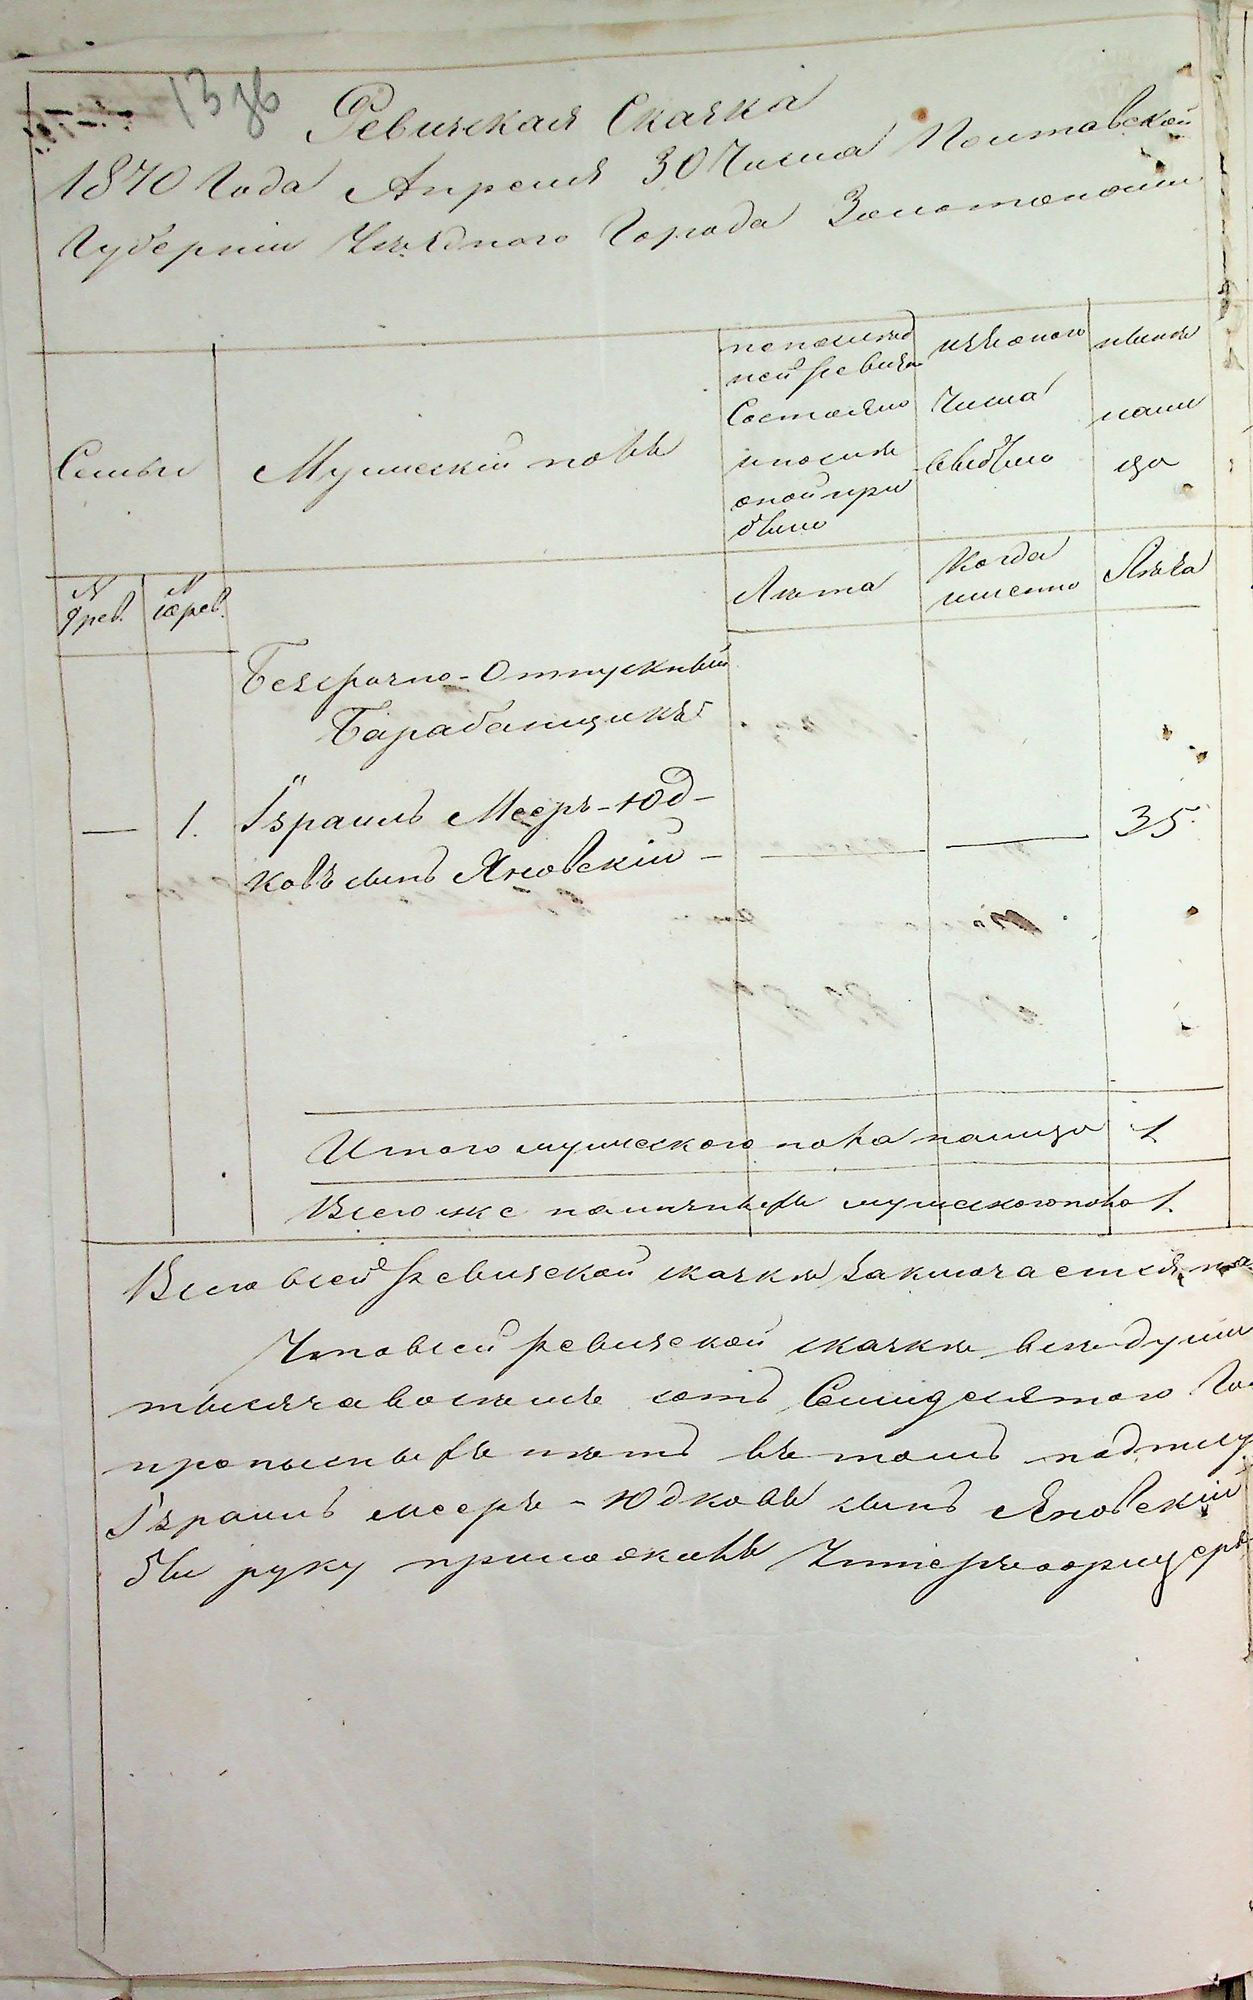 Ревизская Сказка
1870 Года Апреля 30 Числа Полтавской
Губернiи Уѣздного Города Золотоноши
Семьи
Мужескiй полъ
по послѣд
ней ревизiи
состояло
и послѣ
оной при
было
изъ оного
числа
выбыло
нынѣ
на ли
цо
№
9 рев.
№
10 рев.
Лѣта
Когда
именно
Лѣта
Безсрочно-отпускный
Барабанщикъ
— 1. Iзраиль Мееръ-Юд-
ковъ сынъ Яновскiй — — — 35.
Итого мужеского пола на лицо 1
Всего же наличныхъ мужеского пола 1.
Въ сей ревизской сказкѣ заключается
Что въ сей ревизской сказкѣ всѣ души
тысяча восѣмъ сотъ Семидесятого Го
прописныхъ нѣтъ въ томъ подпису
Iзраиль мееръ-Юдковъ сынъ Яновскiй
бы руку приложилъ Унтеръ-офицеръ